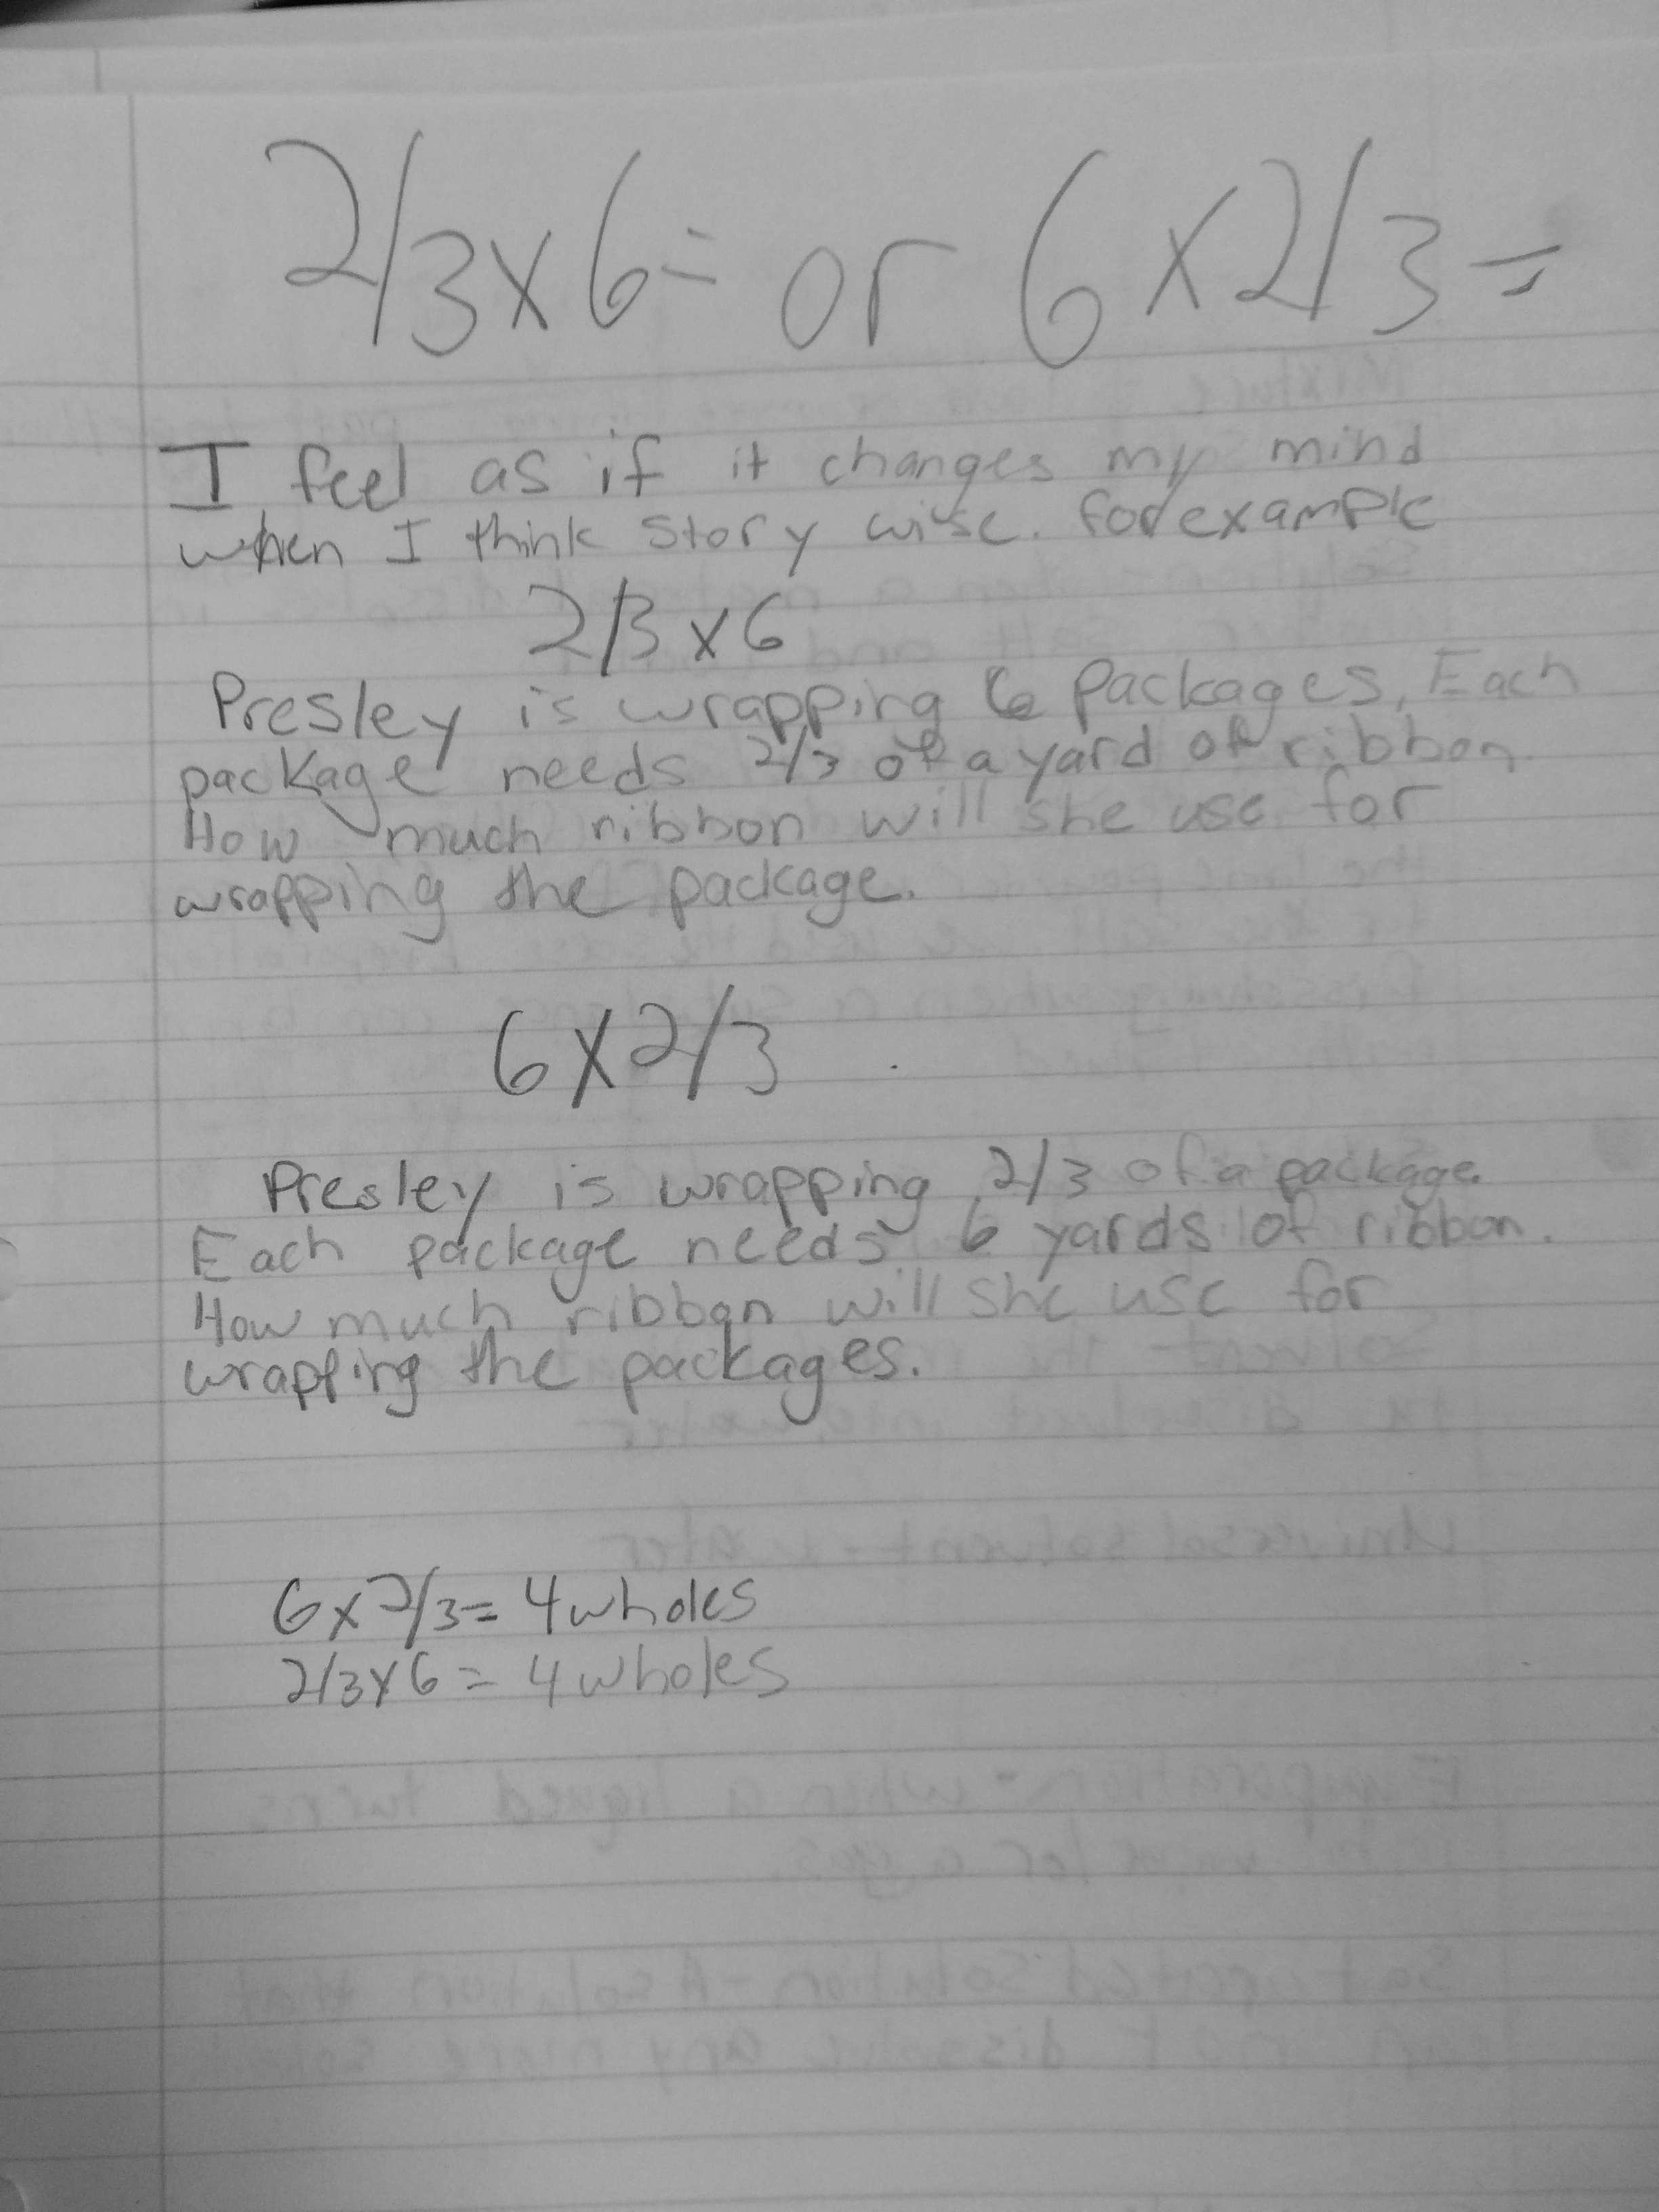 2/3 x 6 = or 6 x 2/3 =
I feel as if it changes my mind
when I think story wise. for example
2/3 x 6
Presley is wrapping 6 packages. Each
package needs 2/3 of a yard of ribbon.
How much ribbon will she use for
wrapping the package.
6 x 2/3
Presley is wrapping 2/3 of a package.
Each package needs 6 yards of ribbon.
How much ribbon will she use for
wrapping the packages.
6 x 2/3 = 4 wholes
2/3 x 6 = 4 wholes